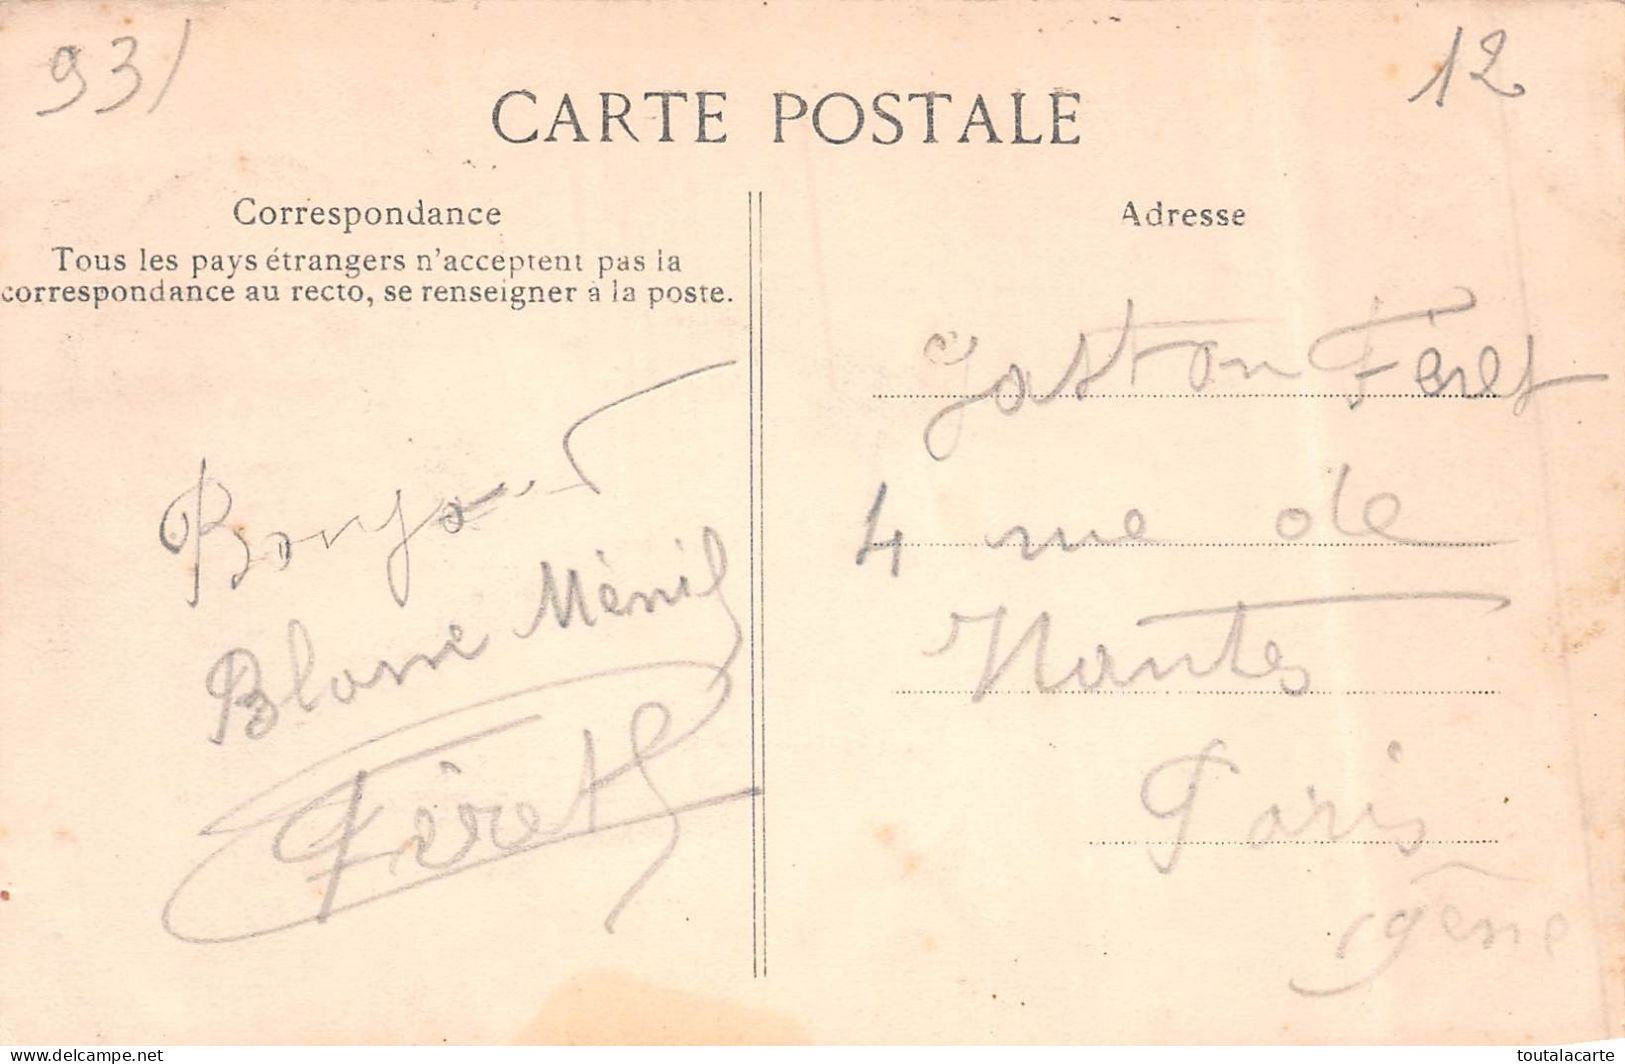 93/
12
CARTE POSTALE
Correspondance
Tous les pays étrangers n'acceptent pas la
correspondance au recto, se renseigner à la poste.
Bonjour
Blanc Ménil
Féret
Adresse
Gaston Féret
4 rue de
Nantes
Paris
19ème
delcampe.net
toutalacarte